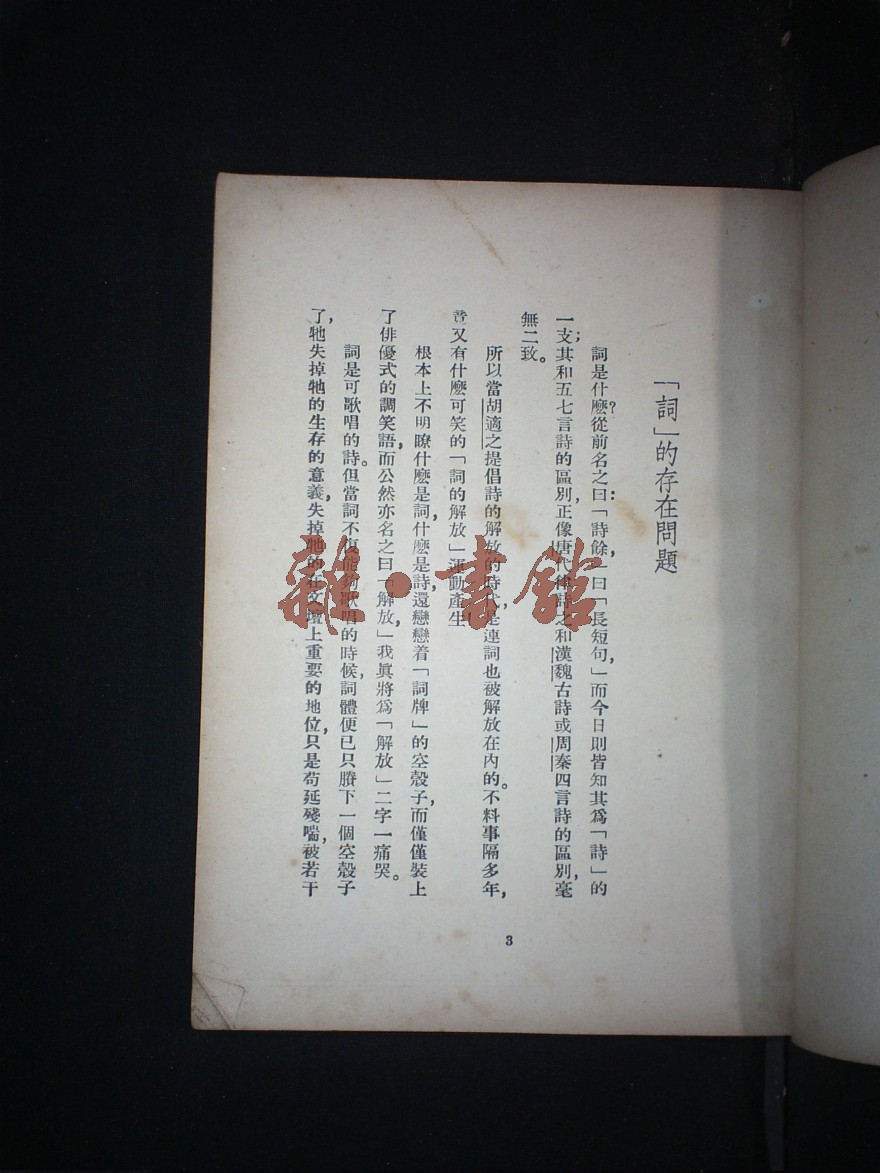 「詞」的存在問題
詞是什麼？從前名之曰：「詩餘，」曰「長短句，」而今日則皆知其爲「詩」的
一支；其和五七言詩的區別，正像唐代律詩之和漢魏古詩或周秦四言詩的區別，毫
無二致。
所以當胡適之提倡詩的解放的時代，是連詞也被解放在內的。不料事隔多年，
竟又有什麼可笑的「詞的解放」運動產生！
根本上不明瞭什麼是詞，什麼是詩，還戀戀着「詞牌」的空殼子，而僅僅裝上
了俳優式的調笑語，而公然亦名之曰「解放，」我眞將爲「解放」二字一痛哭。
詞是可歌唱的詩。但當詞不復能夠歌唱的時候，詞體便已只賸下一個空殼子
了，牠失掉牠的生存的意義，失掉牠的在文壇上重要的地位，只是苟延殘喘，被若干
3
雜·書館